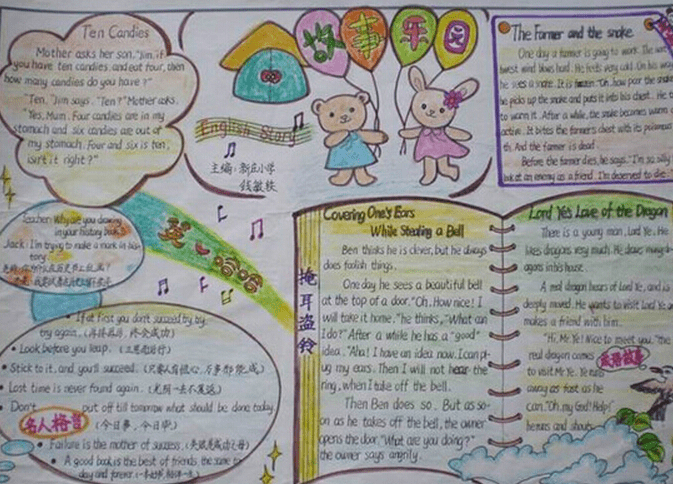 Ten Candies
Mother asks her son, "Jim, if
you have ten candies, and eat four, then
how many candies do you have?"
"Ten," Jim says. "Ten?" Mother asks.
"Yes, Mum. Four candies are in my
stomach and six candies are out of
my stomach. Four and six is ten,
isn't it right?"
故事乐园
English Story
主编:新庄小学
钱敏轶
The Farmer and the snake
One day a farmer is going to work. The
west wind blows hard. He feels very cold. On his way
he sees a snake. It is frozen. "Oh, how poor the snake
he picks up the snake and puts it into his chest. He
to warm it. After a while, the snake becomes warm
active. It bites the farmer's chest with its poisonous
th. And the farmer is dead.
Before the farmer dies, he says, "I'm so silly
look at an enemy as a friend. I'm deserved to die."
Teacher: Why are you drawing
in your history book?
Jack: I'm trying to make a mark in his-
tory.
英 哈哈
If at first you don't succeed, try, try,
try again. (再接再厉,终会成功)
Look before you leap. (三思而后行)
Stick to it, and you'll succeed. (只要人有恒心,万事都能成)
Lost time is never found again. (光阴一去不复返)
Don't put off till tomorrow what should be done today.
名人格言 (今日事,今日毕)
Failure is the mother of success. (失败是成功之母)
A good book is the best of friends, the same to-
day and forever.
掩耳盗铃
Covering One's Ears
While Stealing a Bell
Ben thinks he is clever, but he always
does foolish things.
One day he sees a beautiful bell
at the top of a door. "Oh, How nice! I
will take it home." he thinks, "What can
I do?" After a while he has a "good"
idea. "Aha! I have an idea now. I can pl-
ug my ears. Then I will not hear the
ring, when I take off the bell.
Then Ben does so. But as so-
on as he takes off the bell, the owner
opens the door. "What are you doing?"
the owner says angrily.
Lord Ye's Love of the Dragon
There is a young man, Lord Ye. He
likes dragons very much. He draws many dr-
agons in his house.
A real dragon hears of Lord Ye, and is
deeply moved. He wants to visit Lord Ye an
makes a friend with him.
"Hi, Mr Ye! Nice to meet you," the
real dragon comes
to visit Mr Ye. Ye runs
away as fast as he
can. "Oh, my God! Help!"
he runs and shouts.
成语故事